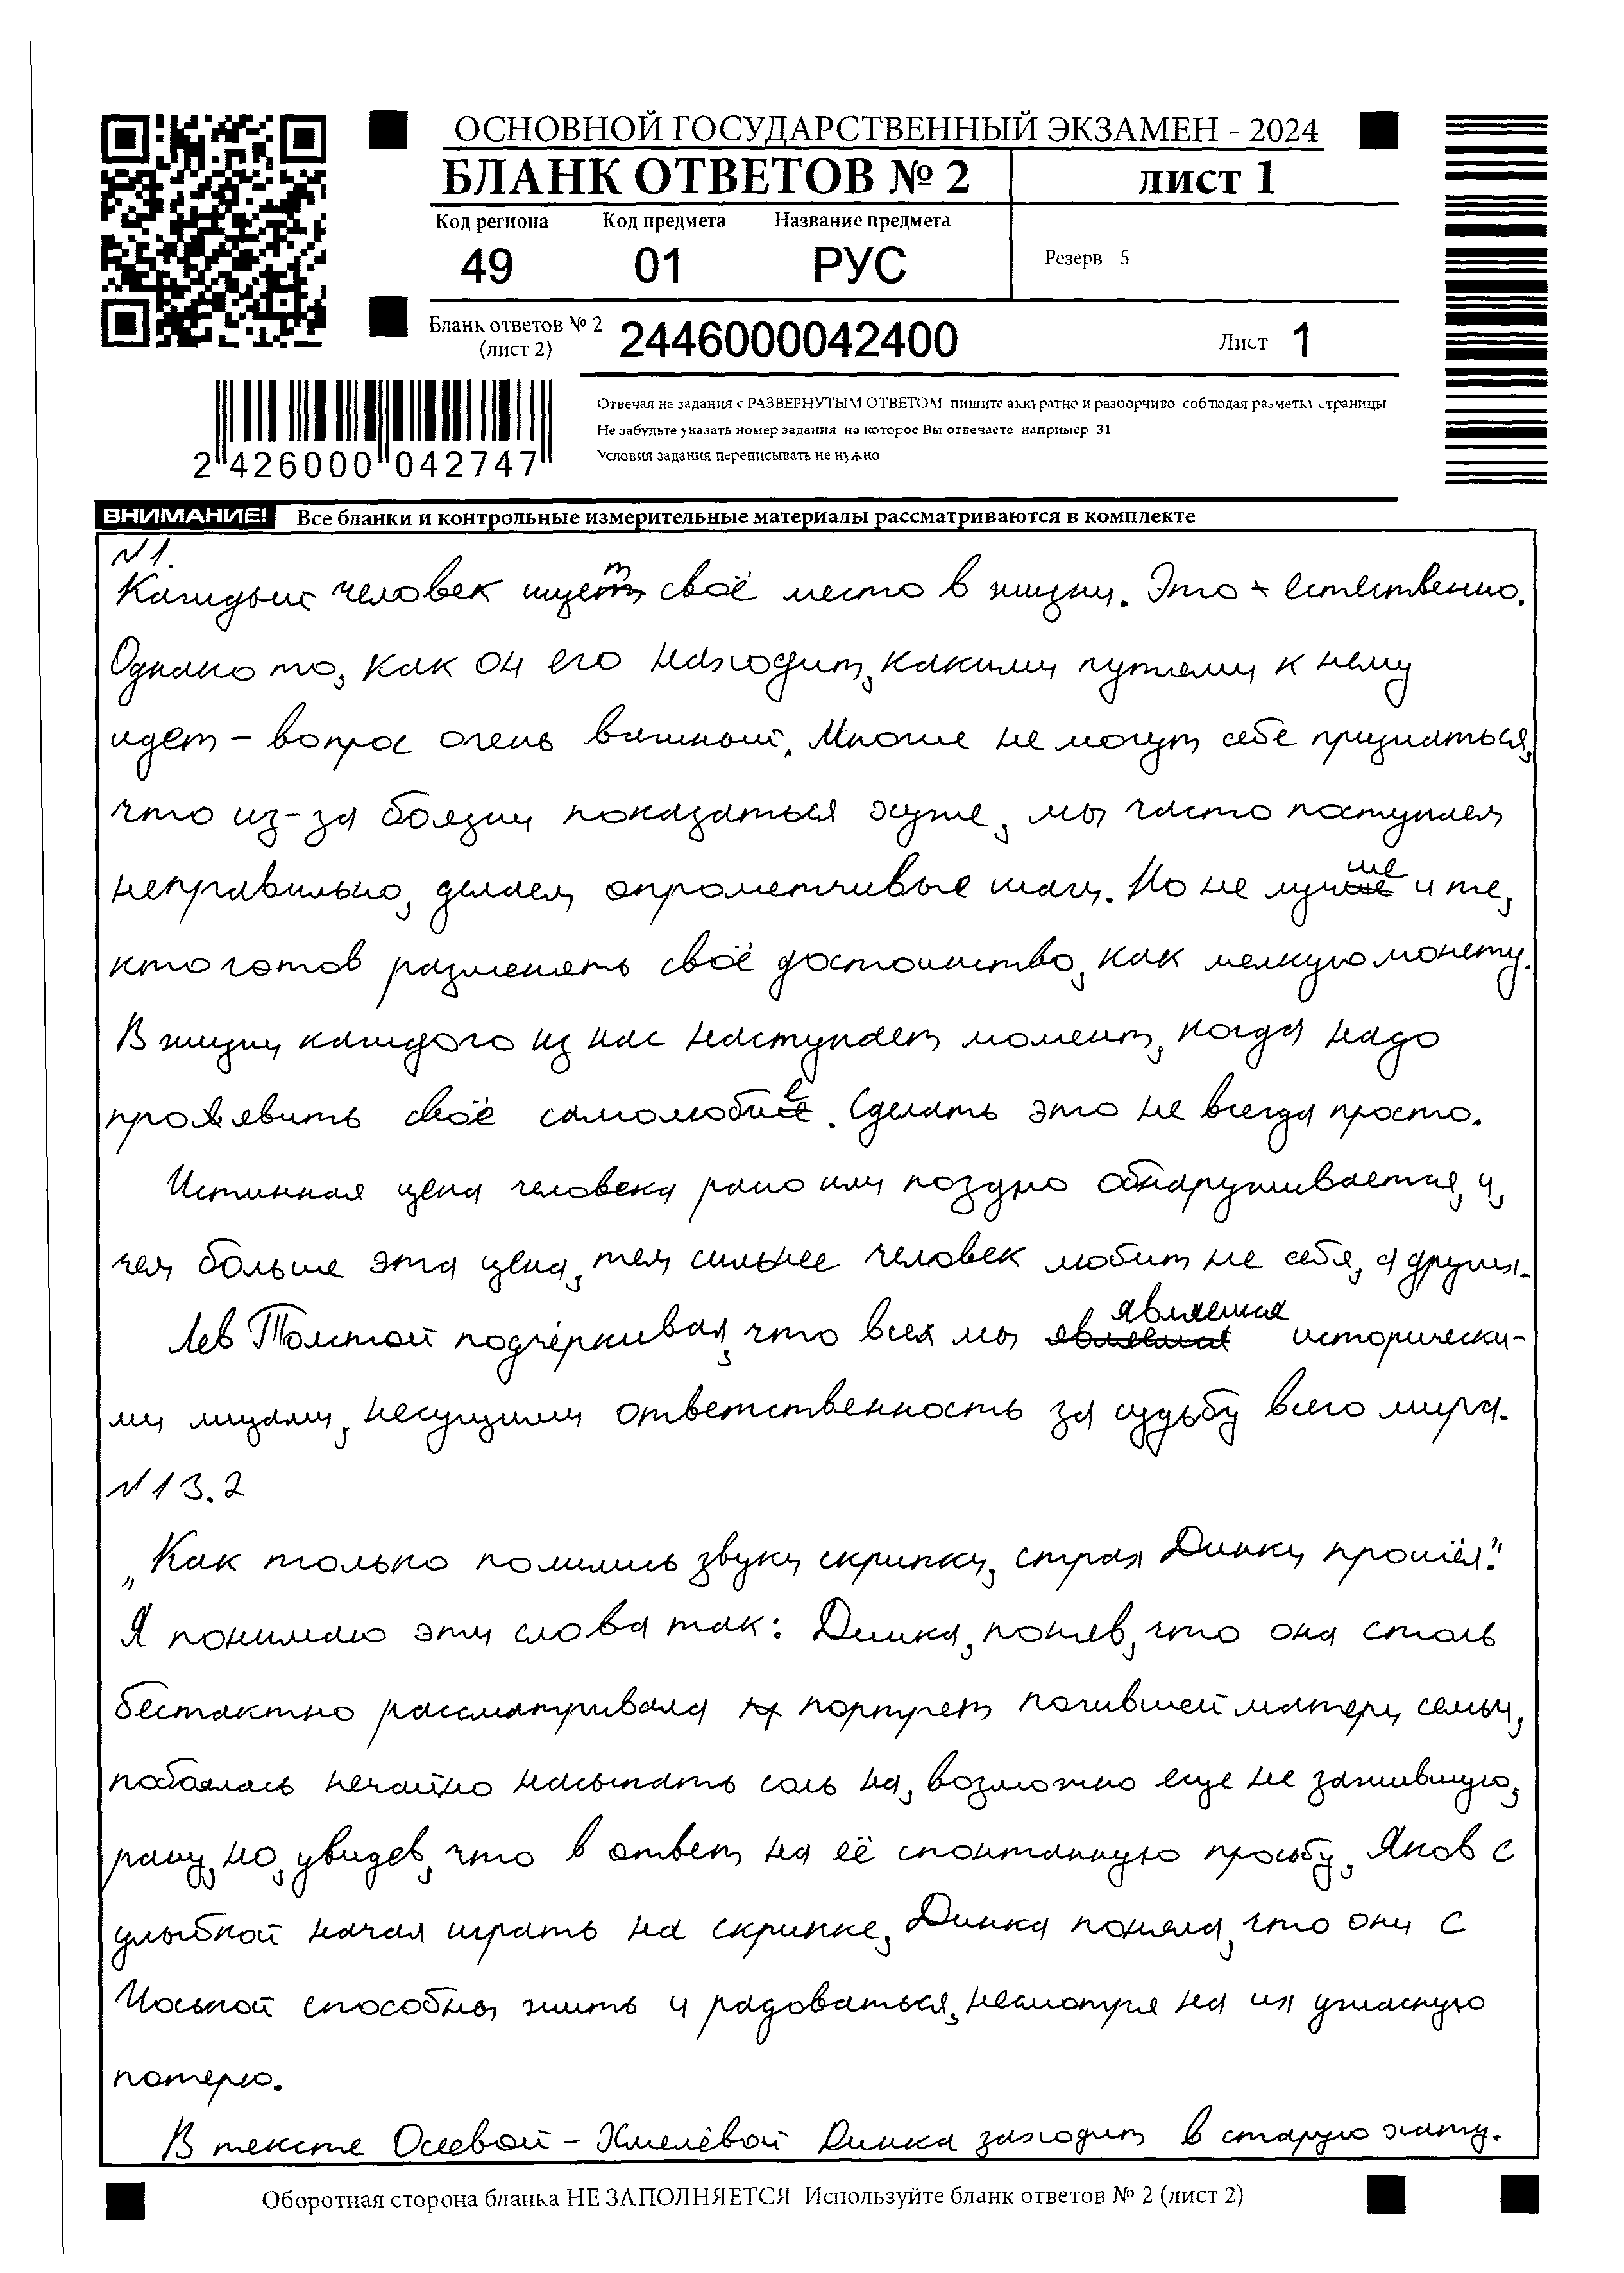 ОСНОВНОЙ ГОСУДАРСТВЕННЫЙ ЭКЗАМЕН - 2024
БЛАНК ОТВЕТОВ № 2
ЛИСТ 1
Код региона Код предмета Название предмета
49 01 РУС
Резерв 5
Бланк ответов № 2 (лист 2) 2446000042400
Лист 1
Отвечая на задания с РАЗВЕРНУТЫМ ОТВЕТОМ пишите аккуратно и разборчиво соблюдая разметку страницы
Не забудьте указать номер задания на которое Вы отвечаете например 31
Условия задания переписывать не нужно
2 426000 042747
ВНИМАНИЕ! Все бланки и контрольные измерительные материалы рассматриваются в комплекте
№1.
Каждый человек ищет своё место в жизни. Это – естественно.
Однако то, как он его находит, какими путями к нему
идет – вопрос очень важный. Многие не могут себе признаться,
что из-за боязни показаться хуже, мы часто поступаем
неправильно, делаем опрометчивые шаги. Но не лучше и те,
кто готов разменять своё достоинство, как мелкую монету.
В жизни каждого из нас наступает момент, когда надо
проявить своё самолюбие. Сделать это не всегда просто.
Истинная цена человека рано или поздно обнаруживается, и,
чем больше эта цена, тем сильнее человек любит не себя, а других.
Лев Толстой подчёркивал, что всех мы являемся исторически-
ми лицами, несущими ответственность за судьбу всего мира.
№13.2
„Как только полились звуки скрипки, страх Динки прошёл."
Я понимаю эти слова так: Динка, поняв, что она столь
бестактно рассматривала портрет погившей матери семьи,
побоялась нечайно насыпать соль на, возможно еще не зажившую,
рану, но, увидев, что в ответ на её спонтанную просьбу, Яков с
улыбкой начал играть на скрипке, Динка поняла, что они с
Иоськой способны жить и радоваться, несмотря на их ужасную
потерю.
В тексте Осеевой – Хмелёвой Динка заходит в старую хату.
Оборотная сторона бланка НЕ ЗАПОЛНЯЕТСЯ Используйте бланк ответов № 2 (лист 2)